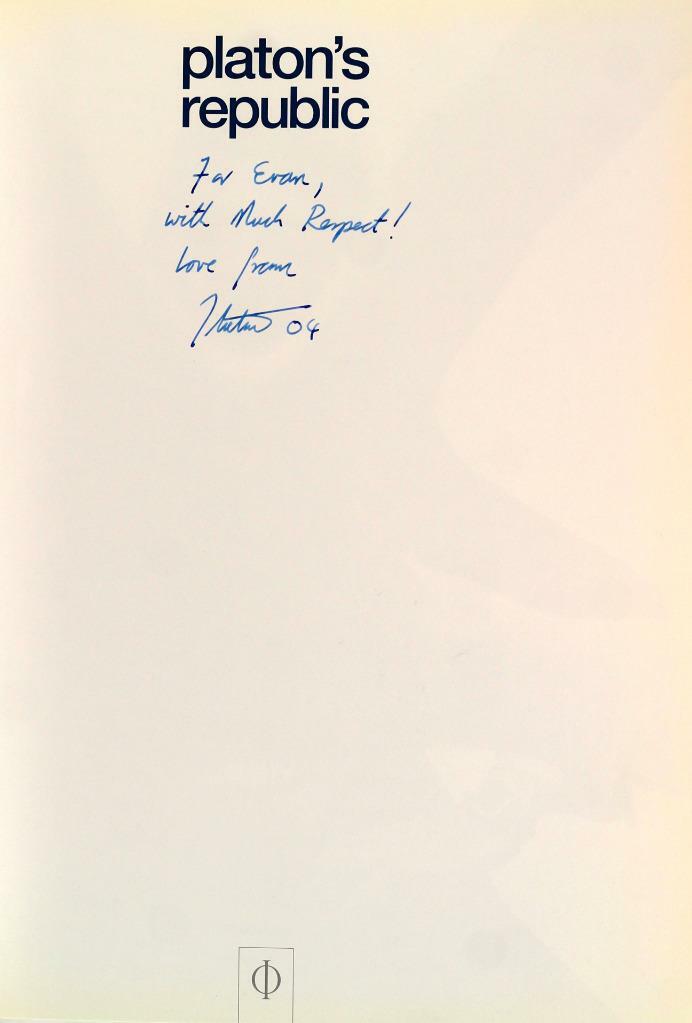 platon's
republic
For Evan,
with Much Respect!
Love from
Platon 04
Φ